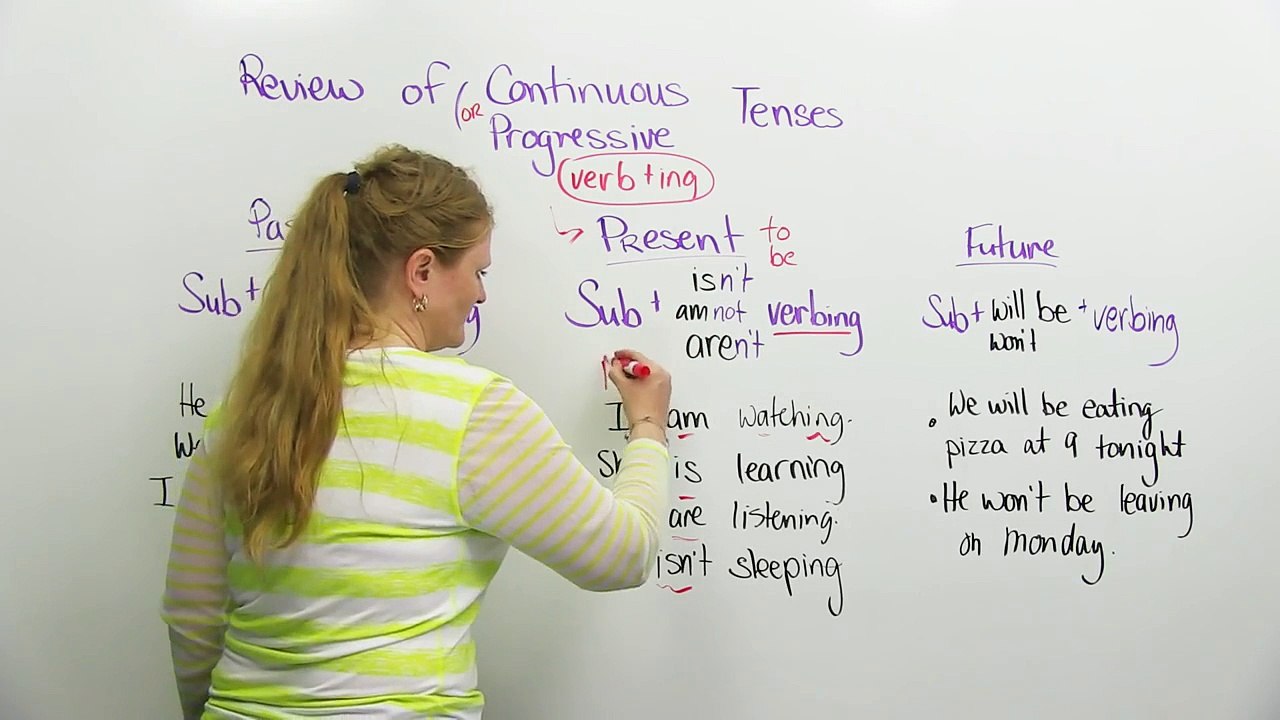 Review of (OR Continuous Tenses
Progressive
verb+ing
Present to be
Sub + isn't am not aren't verbing
I am watching.
is learning
are listening.
isn't sleeping
Future
Sub + will be + verbing
won't
• We will be eating
pizza at 9 tonight
• He won't be leaving
on Monday.
Sub +
He
I